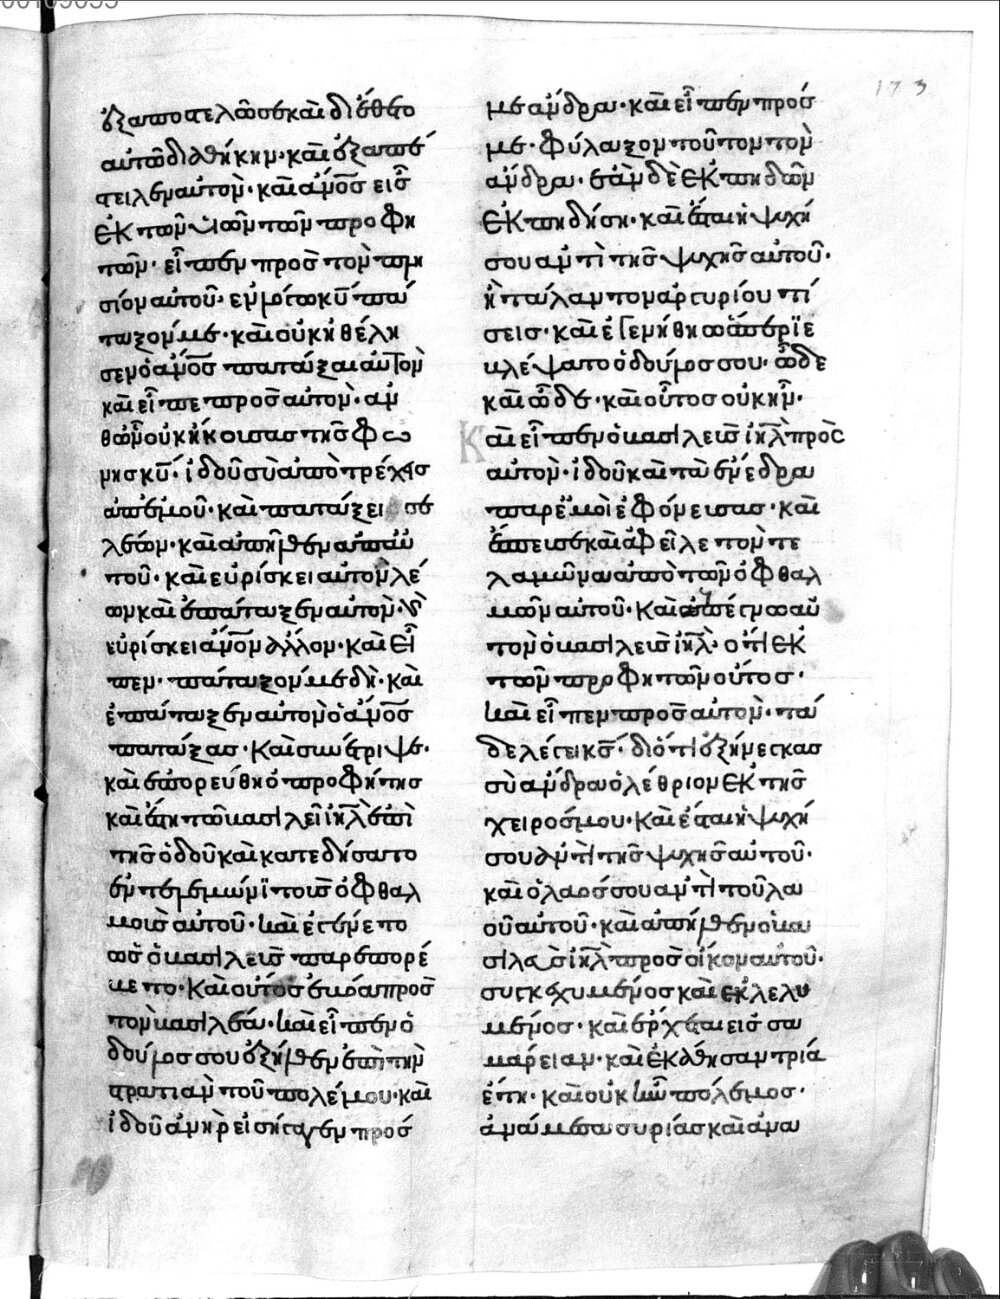 ἐξαποστελῶσε καὶ διέθετο
αὐτῶ διαθήκην· καὶ ἐξαπέ
στειλεν αὐτὸν· καὶ ἄνο̅ς εἷς
ἐκ τῶν υἱῶν τῶν προφη
τῶν· εἶπεν πρὸς τὸν πλη
σίον αὐτοῦ· ἐν λόγω κ̅υ πά
ταξον με· καὶ οὐκ ἠθέλη
σεν ὁ ἄνο̅ς πατάξαι αὐτὸν
καὶ εἶπε πρὸς αὐτὸν· ἀν
θῶν οὐκ ἤκουσας τῆς φω
νῆς κ̅υ· ἰδοῦ σὺ ἀποτρέχεις
ἀπεμοῦ· καὶ πατάξει σε
λέων· καὶ ἀπῆλθεν ἀπαὐ
τοῦ· καὶ εὑρίσκει αὐτὸν λέ
ων καὶ ἐπάταξεν αὐτὸν· Κ
εὑρίσκει ἄνο̅ν ἄλλον· καὶ εἶ
πεν· πάταξον με δὴ· καὶ
ἐπάταξεν αὐτὸν ὁ ἄνο̅ς
πατάξας· Καὶ συνέτριψε·
καὶ ἐπορεύθη ὁ προφήτης
καὶ ἔστη τῶ βασιλεῖ ἰη̅λ ἐπὶ
τῆς ὁδοῦ καὶ κατεδήσατο
ἐν τελεμῶνι τοὺς ὀφθαλ
μοὺς αὐτοῦ· Καὶ ἐγένετο
ὡς ὁ βασιλεὺς παρεπορέ
βετο· Καὶ οὗτος ἐβόα πρὸς
τὸν βασιλέα· Καὶ εἶπεν ὁ
δοῦλος σου ἐξῆλθεν ἐπὶ τὴν
στρατιὰν τοῦ πολέμου· καὶ
ἰδοῦ ἀνὴρ εἰσήγαγεν πρός
με ἄνδρα· καὶ εἶπεν πρός
με· φύλαξον τοῦτον τὸν
ἄνδρα· ἐὰν δὲ ἐκπηδῶν
ἐκπηδήση· καὶ ἔσται ἡ ψυχή
σου ἀντὶ τῆς ψυχῆς αὐτοῦ·
ἢ τάλαντον ἀργυρίου στή
σεις· καὶ ἐγενήθη ὡς περιε
βλέψατο ὁ δοῦλος σου· ὧδε
καὶ ὧδε· καὶ οὗτος οὐκ ἦν·
Καὶ εἶπεν ὁ βασιλεὺς ἰη̅λ πρὸς
αὐτὸν· ἰδοῦ καὶ τὰ ἔνεδρα
παρέμοὶ ἐφόνευσας· καὶ
ἔσπευσε καὶ ἀφεῖλε τὸν τε
λαμῶνα ἀπὸ τῶν ὀφθαλ
μῶν αὐτοῦ· Καὶ ἐπέγνω αὐ
τὸν ὁ βασιλεὺς ἰη̅λ· ὅτι ἐκ
τῶν προφητῶν οὗτος·
Καὶ εἶπεν πρὸς αὐτὸν· τά
δε λέγει κ̅ς· διότι ἐξήνεγκας
σὺ ἄνδρα ὀλέθριον ἐκ τῆς
χειρός μου· Καὶ ἔσται ἡ ψυχή
σου ἀντὶ τῆς ψυχῆς αὐτοῦ·
καὶ ὁ λαός σου ἀντὶ τοῦ λα
οῦ αὐτοῦ· καὶ ἀπῆλθεν ὁ βα
σιλεὺς ἰη̅λ πρὸς οἶκον αὐτοῦ·
συγκεχυμένος καὶ ἐκλελυ
μένος· καὶ ἔρχεται εἰς σα
μάρειαν· καὶ ἐκάθησαν τρία
ἔτη· καὶ οὐκ ἦν πόλεμος·
ἀνάμεσα συρίας καὶ ἀνα